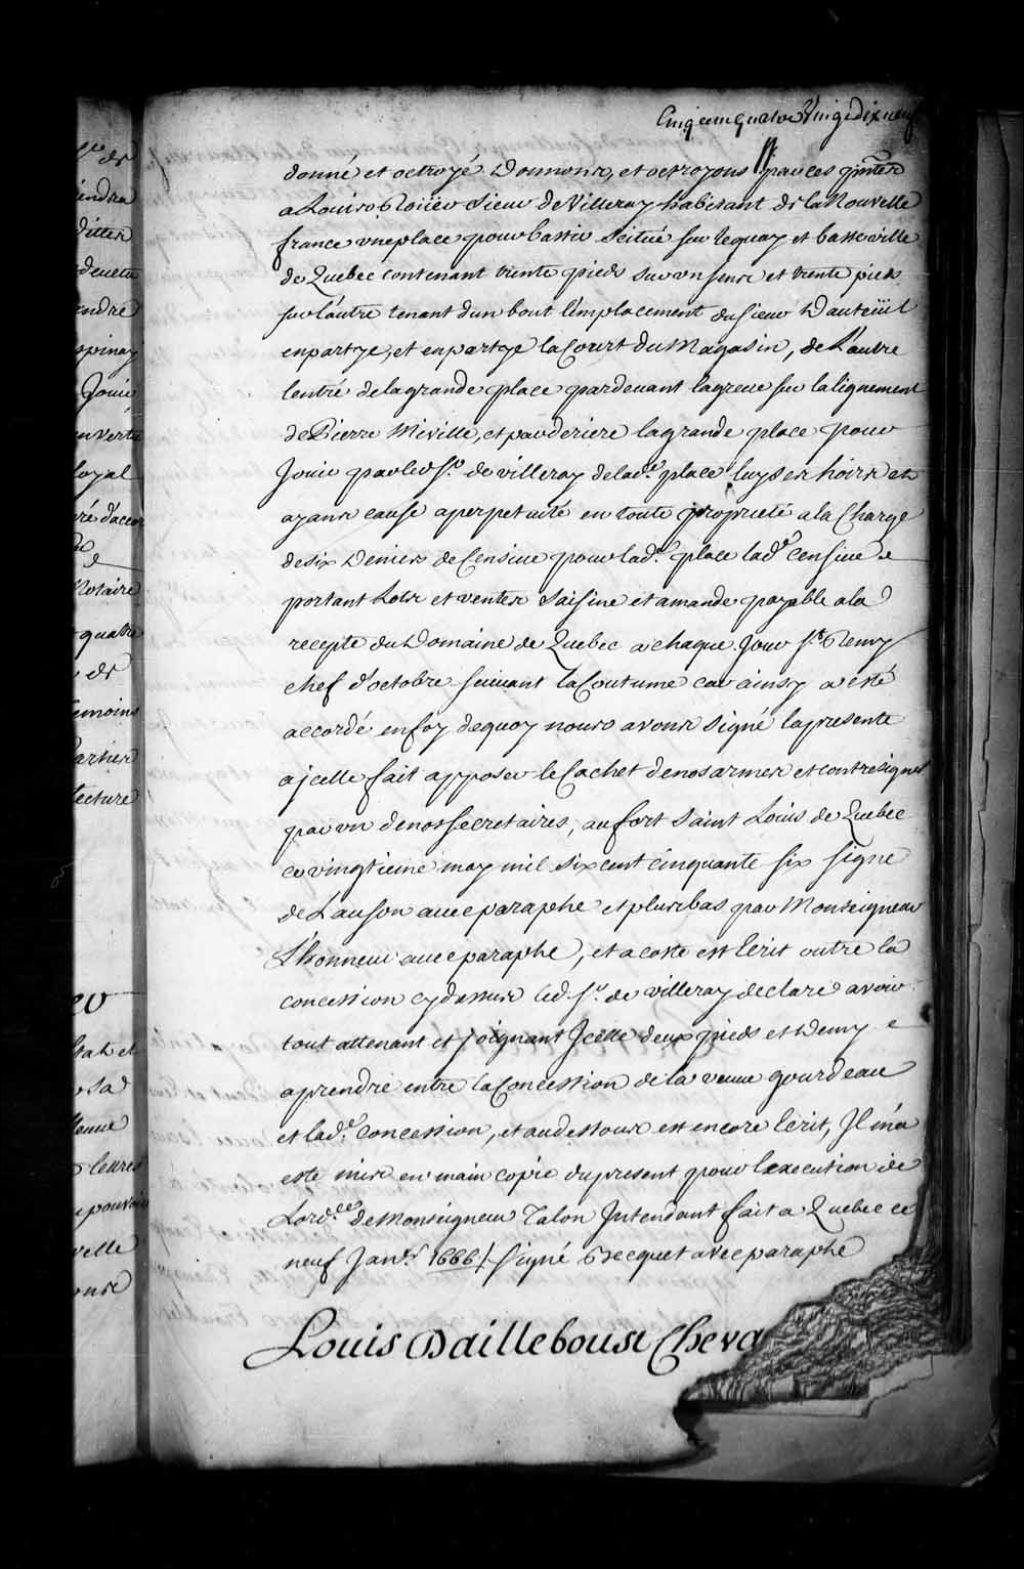 Cinq cens quatre Vingt dix neuf
donné et octroyé Donnons, et octroyons par ces pñtes
a Louis Roüer Sieur de Villeray habitant de la Nouvelle
france vne place pour bastir Scitué sur le quay et basse ville
de Quebec contenant trente pieds sur vn sens et trente pieds
sur l'autre tenant d'un bout l'Emplacement du sieur Dauteüil
en partye, et en partye la Court du Magasin, de l'autre
lentré de la grande place par devant la greue sur la lignement
de Pierre Miville, et par deriere la grande place pour
Jouir par led. Sr. de villeray de lad.e place luy ses hoirs et
ayans cause a perpetuité en toute proprieté a la Charge
de six Deniers de Censiue pour lad.e place lad.e Censiue
portant Lots et ventes Saisine et amande payable a la
recepte du Domaine de Quebec a chaque Jour St. Remy
chef d'octobre suivant la Coutume car ainsy a esté
accordé en foy de quoy nous avons signé la presente
a jcelle fait apposer le Cachet de nos armes et contresigner
par vn de nos secretaires, au fort Saint Louis de Quebec
ce vingtieme may mil six cent cinquante six signe
de Lauson avec paraphe et plus bas par Monseigneur
Lhonneur avec paraphe, et a coste est Ecrit outre la
concession cy dessus led. Sr. de villeray declare avoir
tout attenant et joignant Jcelle deux pieds et Demy
a prendre entre la Concession de la veuue gourdeau
et lad.e concession, et au dessous est encore Ecrit, Jl m'a
esté mis en main copie du present pour l'execution de
Lord.ce de Monseigneur Talon Jntendant fait a Quebec ce
neuf Janr. 1666 / signé Becquet avec paraphe
Louis Dailleboust Cheva